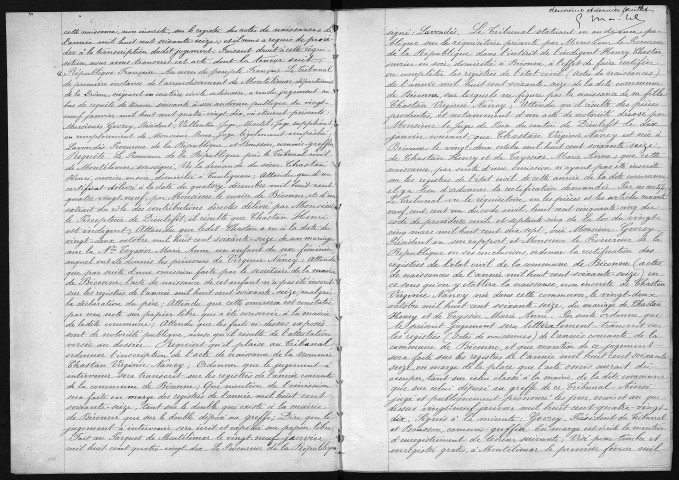 cette naissance, non inscrite, sur le registre des actes de naissances de
l'année mil huit cent soixante-seize, et et nous a requis de procé-
der à la transcription dudit jugement. Faisant droit à cette réqui-
sition, nous avons transcrit cet acte dont la teneur suit:
République Française. Au nom du peuple Français. Le Tribunal
de première instance de l'arrondissement de Montélimar département
de la Drôme siégeant en matière civile ordinaire, a rendu jugement au
bas de requête de teneur suivante à son audience publique du vingt-
neuf janvier mil huit cent quatre-vingt-dix, où étaient présents:
Messieurs Govrey, Président, Vallentin, Juge, Juge suppléant
en remplacement de Monsieur Juge légalement empêché,
Lavondès, Procureur de la République, et Bouson, commis-greffier
Requête. Le Procureur de la République près le Tribunal civil
de Montélimar soussigné. Vu la demande du sieur Chastan
Henri, ouvrier en soie, domicilié à Taulignan; Attendu que d'un
certificat délivré à la date du quatorze décembre mil huit cent
quatre-vingt-neuf, par Monsieur le maire de Béconne, et d'un
extrait du rôle des contributions directes délivré par Monsieur
le Percepteur de Dieulefit, il résulte que Chastan Henri
est indigent; Attendu que ledit Chastan a eu à la date du
vingt-deux octobre mil huit cent soixante-seize de son mariage
avec la dlle Teyssier Marie Anne un enfant du sexe féminin
auquel ont été donnés les prénoms de Virginie Nancy; Attendu
que par suite d'une omission faite par le secrétaire de la mairie
de Béconne, l'acte de naissance de cet enfant n'a pas été inscrit
sur les registres de l'année mil huit cent soixante-seize, malgré
la déclaration du père; Attendu que cette omission est constatée
par une note sur papier libre qui a été conservée à la mairie
de ladite commune; Attendu que les faits ci-dessus exposés
sont de notoriété publique, ainsi qu'il résulte de l'attestation
versée au dossier. Requiert qu'il plaise au Tribunal
ordonner l'inscription de l'acte de naissance de la nommée
Chastan Virginie Nancy; Ordonner que le jugement à
intervenir sera transcrit sur les registres de l'année courante
de la commune de Béconne; Que mention de l'omission
sera faite en marge des registres de l'année mil huit cent
soixante-seize, tant sur le double qui existe à la mairie
de Béconne que sur le double déposé au greffe; Dire que le
jugement à intervenir sera écrit et expédié sur papier libre.
Fait au Parquet de Montélimar le vingt-neuf janvier
mil huit cent quatre-vingt-dix. Le Procureur de la République
deuxième et dernier feuillet
signé: Lavondès. Le Tribunal statuant en audience pu-
blique sur la réquisitoire présenté par Monsieur le Procureur
de la République dans l'intérêt de l'indigent Henry Chastan
ouvrier en soie, domicilié à Béconne, à l'effet de faire rectifier
ou compléter les registres de l'état civil (actes de naissances)
de l'année mil huit cent soixante-seize de la dite commune
de Béconne sur lequel ne figure pas la naissance de sa fille
Chastan Virginie Nancy; Attendu qu'il résulte des pièces
produites, et notamment d'un acte de notoriété dressé par
Monsieur le Juge de Paix du canton de Dieulefit le dix
janvier courant que Chastan Virginie Nancy est née à
Béconne le vingt-deux octobre mil huit cent soixante-seize,
de Chastan Henry et de Teyssier Marie Anne; que cette
naissance par suite d'une omission n'ayant pas été inscrite
sur les registres de l'état civil de cette année de la dite commune
il y a lieu d'ordonner la rectification demandée. Par ces motifs
le Tribunal vu le réquisitoire, vu les pièces et les articles quatre-vingt-dix-
neuf, cent, cent un du code civil, huit cent cinquante-cinq du
code de procédure civile et septante-cinq de la loi du vingt-
cinq mars mil huit cent dix-sept; ouï Monsieur Govrey
Président en son rapport, et Monsieur le Procureur de la
République en ses conclusions, ordonne la rectification des
registres de l'état civil de la commune de Béconne (actes
de naissances de l'année mil huit cent soixante-seize) en
ce sens qu'on y établira la naissance non inscrite de Chastan
Virginie Nancy née dans cette commune, le vingt-deux
octobre mil huit cent soixante-seize, du mariage de Chastan
Henry et de Teyssier Marie Anne. En suite ordonne que
le présent Jugement sera littéralement transcrit sur
les registres (actes de naissances) de l'année courante de la
commune de Béconne, et que mention de ce jugement
sera faite sur les registres de l'année mil huit cent soixante-
seize, en marge de la place que l'acte omis aurait dû
occuper, tant sur celui placé à la mairie de la dite commune
que sur celui déposé au greffe de ce Tribunal. Ainsi
jugé et publiquement prononcé les jour, mois et an que
dessus, vingt-neuf janvier, mil huit cent quatre-vingt-
dix. Signés à la minute: Govrey, Président du Tribunal
et Bouson, commis-greffier. En marge est écrite la mention
d'enregistrement de teneur suivante: Visé pour timbre et
enregistré gratis, à Montélimar le premier février mil